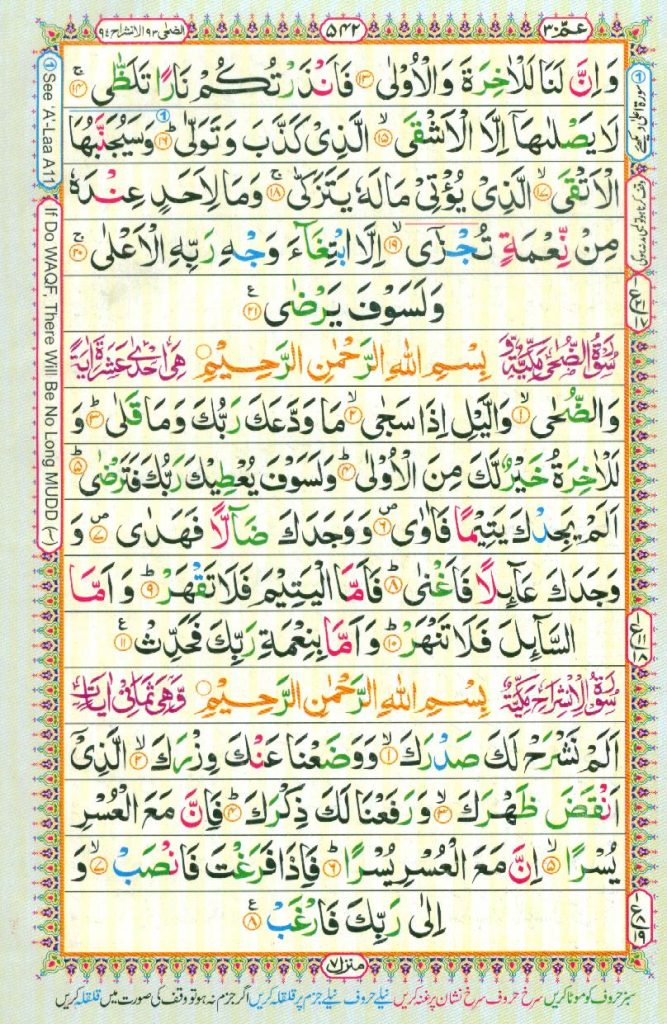 عمّ ٣٠
۵۴۲
الضحٰى ٩٣ الانشراح ٩٤
وَاِنَّ لَنَا لَلْاٰخِرَةَ وَالْاُوْلٰى ۝١٣ فَاَنْذَرْتُكُمْ نَارًا تَلَظّٰى ۝١٤
لَا يَصْلٰىهَاۤ اِلَّا الْاَشْقَى ۝١٥ الَّذِىْ كَذَّبَ وَتَوَلّٰى ۝١٦ وَسَيُجَنَّبُهَا
الْاَتْقَى ۝١٧ الَّذِىْ يُؤْتِىْ مَالَهٗ يَتَزَكّٰى ۝١٨ وَمَا لِاَحَدٍ عِنْدَهٗ
مِنْ نِّعْمَةٍ تُجْزٰٓى ۝١٩ اِلَّا ابْتِغَآءَ وَجْهِ رَبِّهِ الْاَعْلٰى ۝٢٠
وَلَسَوْفَ يَرْضٰى ۝٢١
سُوْرَةُ الضُّحٰى مَكِّيَّةٌ بِسْمِ اللهِ الرَّحْمٰنِ الرَّحِيْمِ هِىَ اِحْدٰى عَشْرَةَ اٰيَةً
وَالضُّحٰى ۝١ وَالَّيْلِ اِذَا سَجٰى ۝٢ مَا وَدَّعَكَ رَبُّكَ وَمَا قَلٰى ۝٣ وَ
لَلْاٰخِرَةُ خَيْرٌ لَّكَ مِنَ الْاُوْلٰى ۝٤ وَلَسَوْفَ يُعْطِيْكَ رَبُّكَ فَتَرْضٰى ۝٥
اَلَمْ يَجِدْكَ يَتِيْمًا فَاٰوٰى ۝٦ وَوَجَدَكَ ضَآلًّا فَهَدٰى ۝٧ وَ
وَجَدَكَ عَآئِلًا فَاَغْنٰى ۝٨ فَاَمَّا الْيَتِيْمَ فَلَا تَقْهَرْ ۝٩ وَ اَمَّا
السَّآئِلَ فَلَا تَنْهَرْ ۝١٠ وَاَمَّا بِنِعْمَةِ رَبِّكَ فَحَدِّثْ ۝١١
سُوْرَةُ الْاِنْشِرَاحِ مَكِّيَّةٌ بِسْمِ اللهِ الرَّحْمٰنِ الرَّحِيْمِ وَّهِىَ ثَمَانِىْ اٰيَاتٍ
اَلَمْ نَشْرَحْ لَكَ صَدْرَكَ ۝١ وَوَضَعْنَا عَنْكَ وِزْرَكَ ۝٢ الَّذِىْۤ
اَنْقَضَ ظَهْرَكَ ۝٣ وَرَفَعْنَا لَكَ ذِكْرَكَ ۝٤ فَاِنَّ مَعَ الْعُسْرِ
يُسْرًا ۝٥ اِنَّ مَعَ الْعُسْرِ يُسْرًا ۝٦ فَاِذَا فَرَغْتَ فَانْصَبْ ۝٧ وَ
اِلٰى رَبِّكَ فَارْغَبْ ۝٨
منزل ٧
سبز حروف کو موٹا کریں سرخ حروف سرخ نشان پر غنہ کریں نیلے حروف نیلے جزم پر قلقلہ کریں اگر جزم نہ ہو تو وقف کی صورت میں قلقلہ کریں
① See 'A'-Laa A11
If Do WAQF, There Will Be No Long MUDD (~)